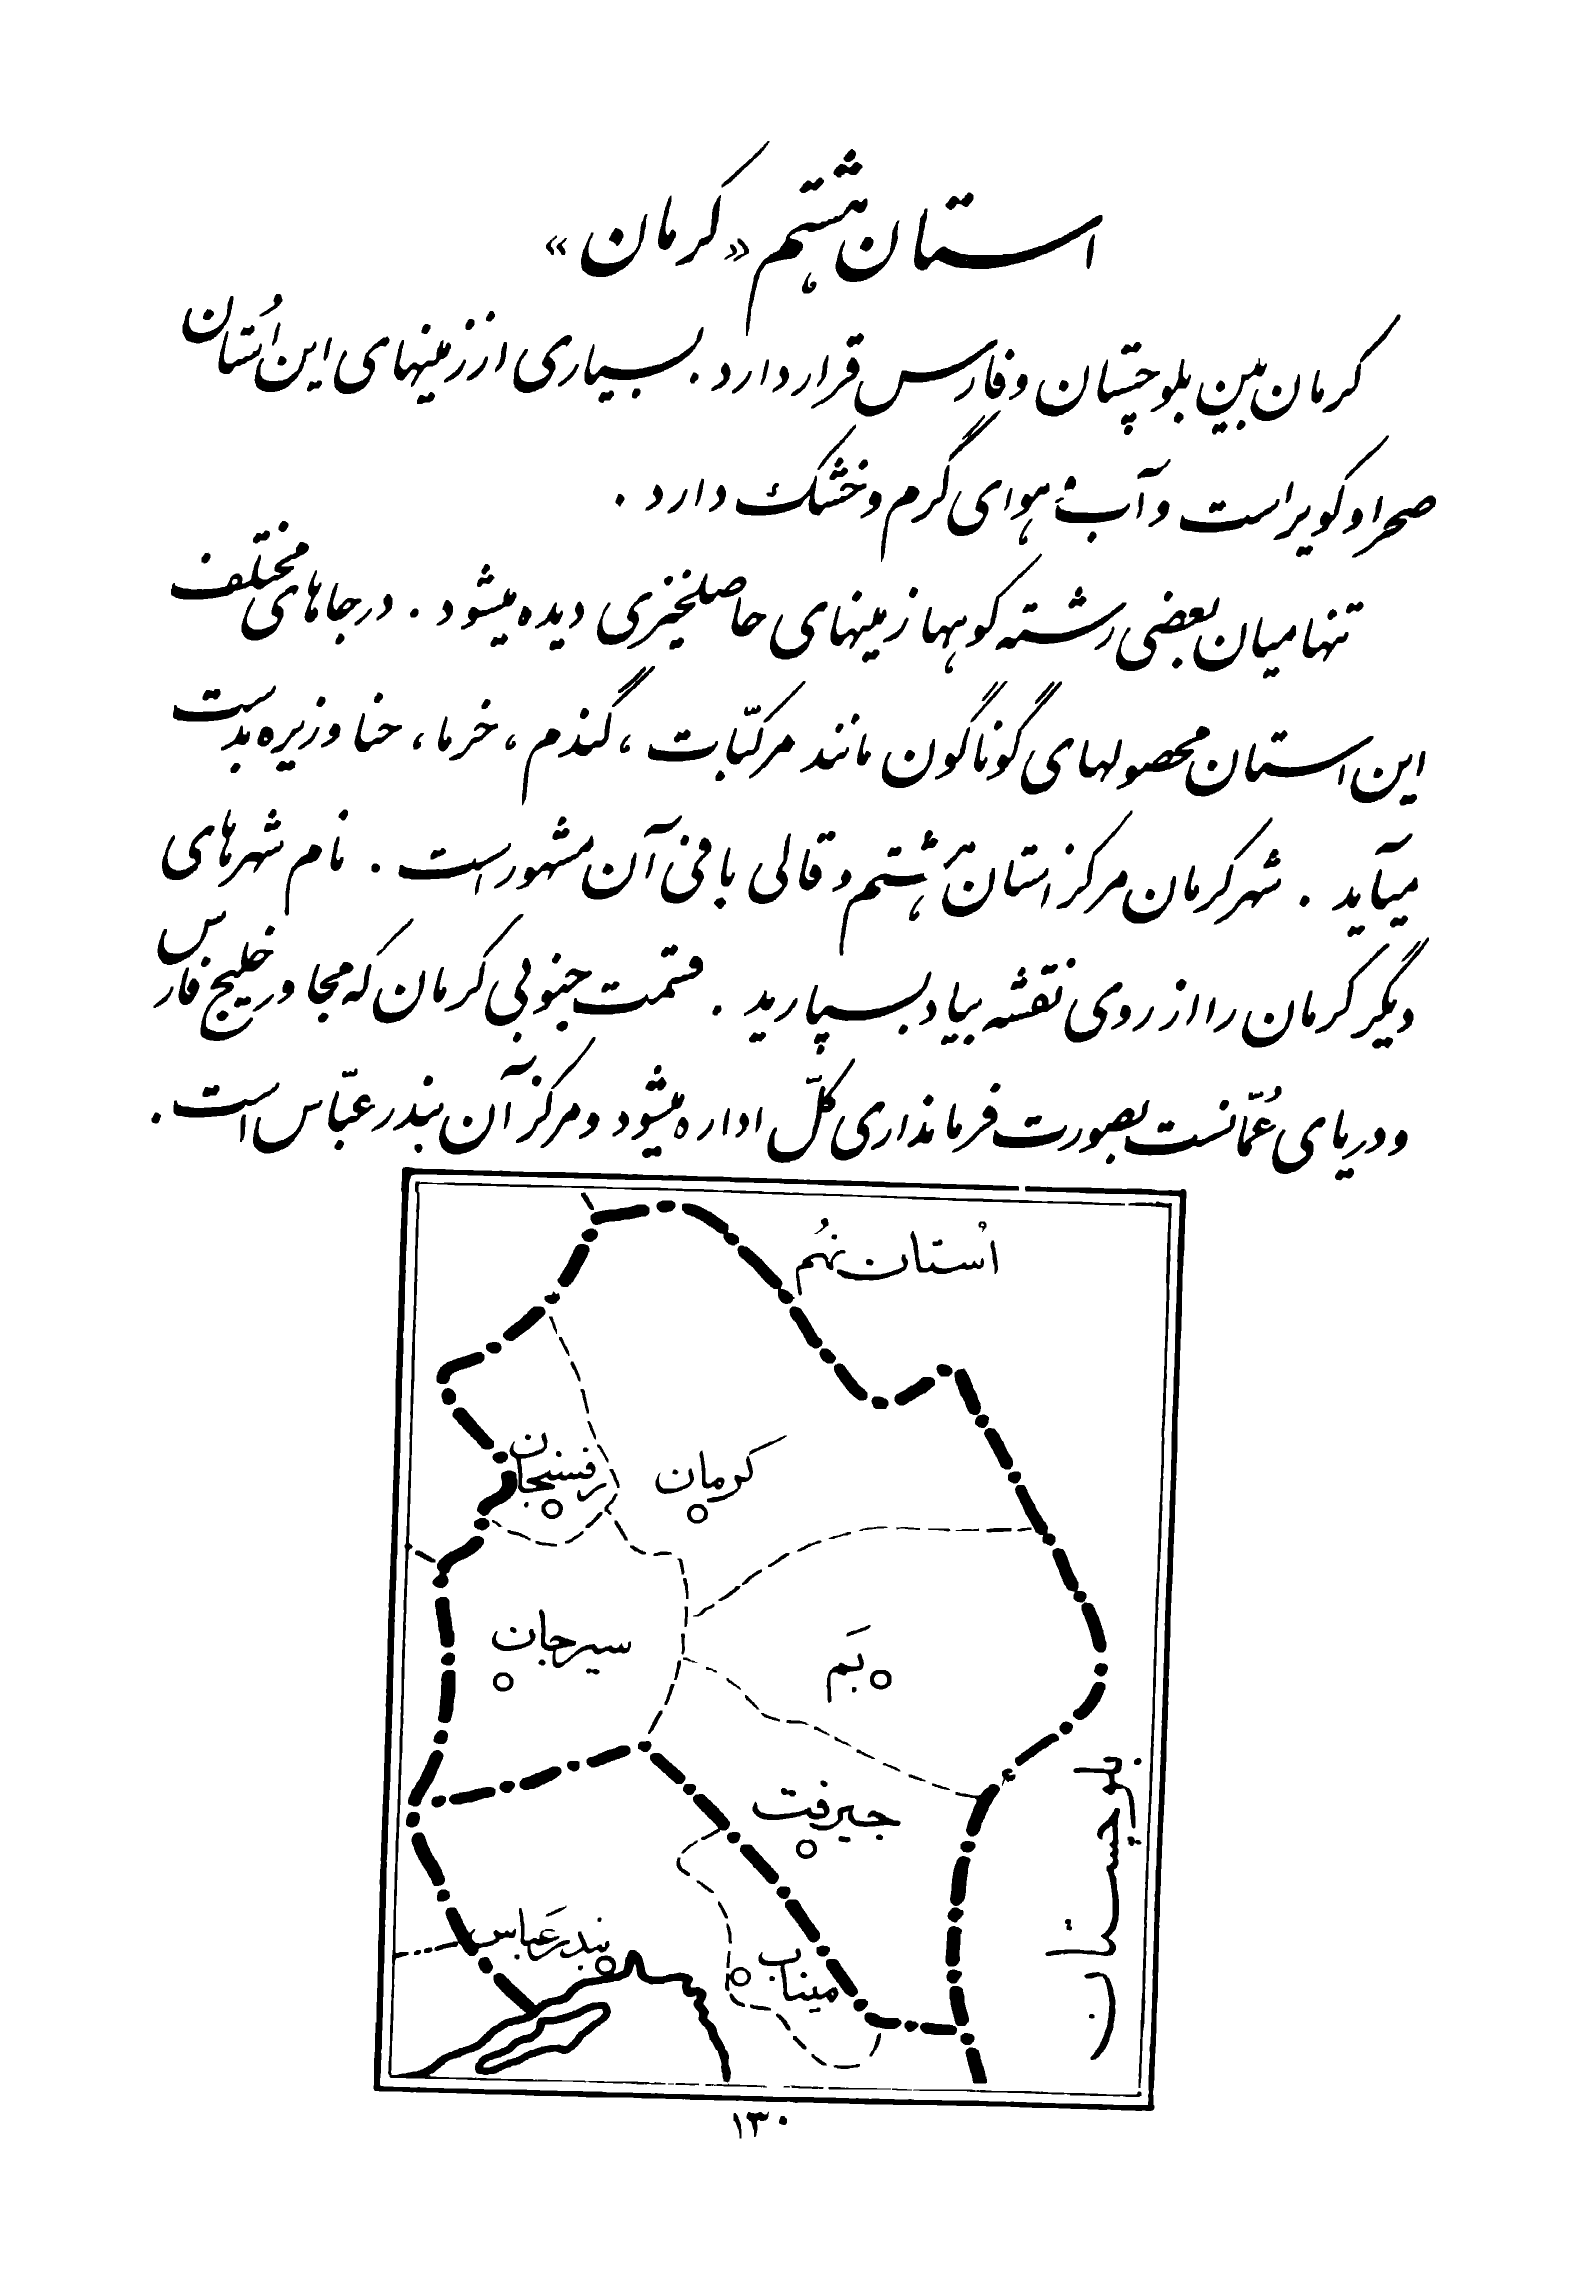 استان هشتم «کرمان»
کرمان بین بلوچستان و فارس قرار دارد. بسیاری از زمینهای این اُستان
صحرا و کویر است و آب و هوای گرم و خشک دارد.
تنها میان بعضی رشته کوهها زمینهای حاصلخیزی دیده میشود. در جاهای مختلف
این استان محصولهای گوناگون مانند مرکّبات، گندم، خرما، حنا و زیره بدست
میآید. شهر کرمان مرکز استان هشتم و قالی بافی آن مشهور است. نام شهرهای
دیگر کرمان را از روی نقشه بیاد بسپارید. قسمت جنوبی کرمان که مجاور خلیج فارس
و دریای عُمّانست بصورت فرمانداری کلّ اداره میشود و مرکز آن بندر عبّاس است.
اُستان نهُم
رفسنجان
کرمان
سیرجان
بَم
جیرفت
بلوچستان
بندرعَباس
میناب
۱۳۰